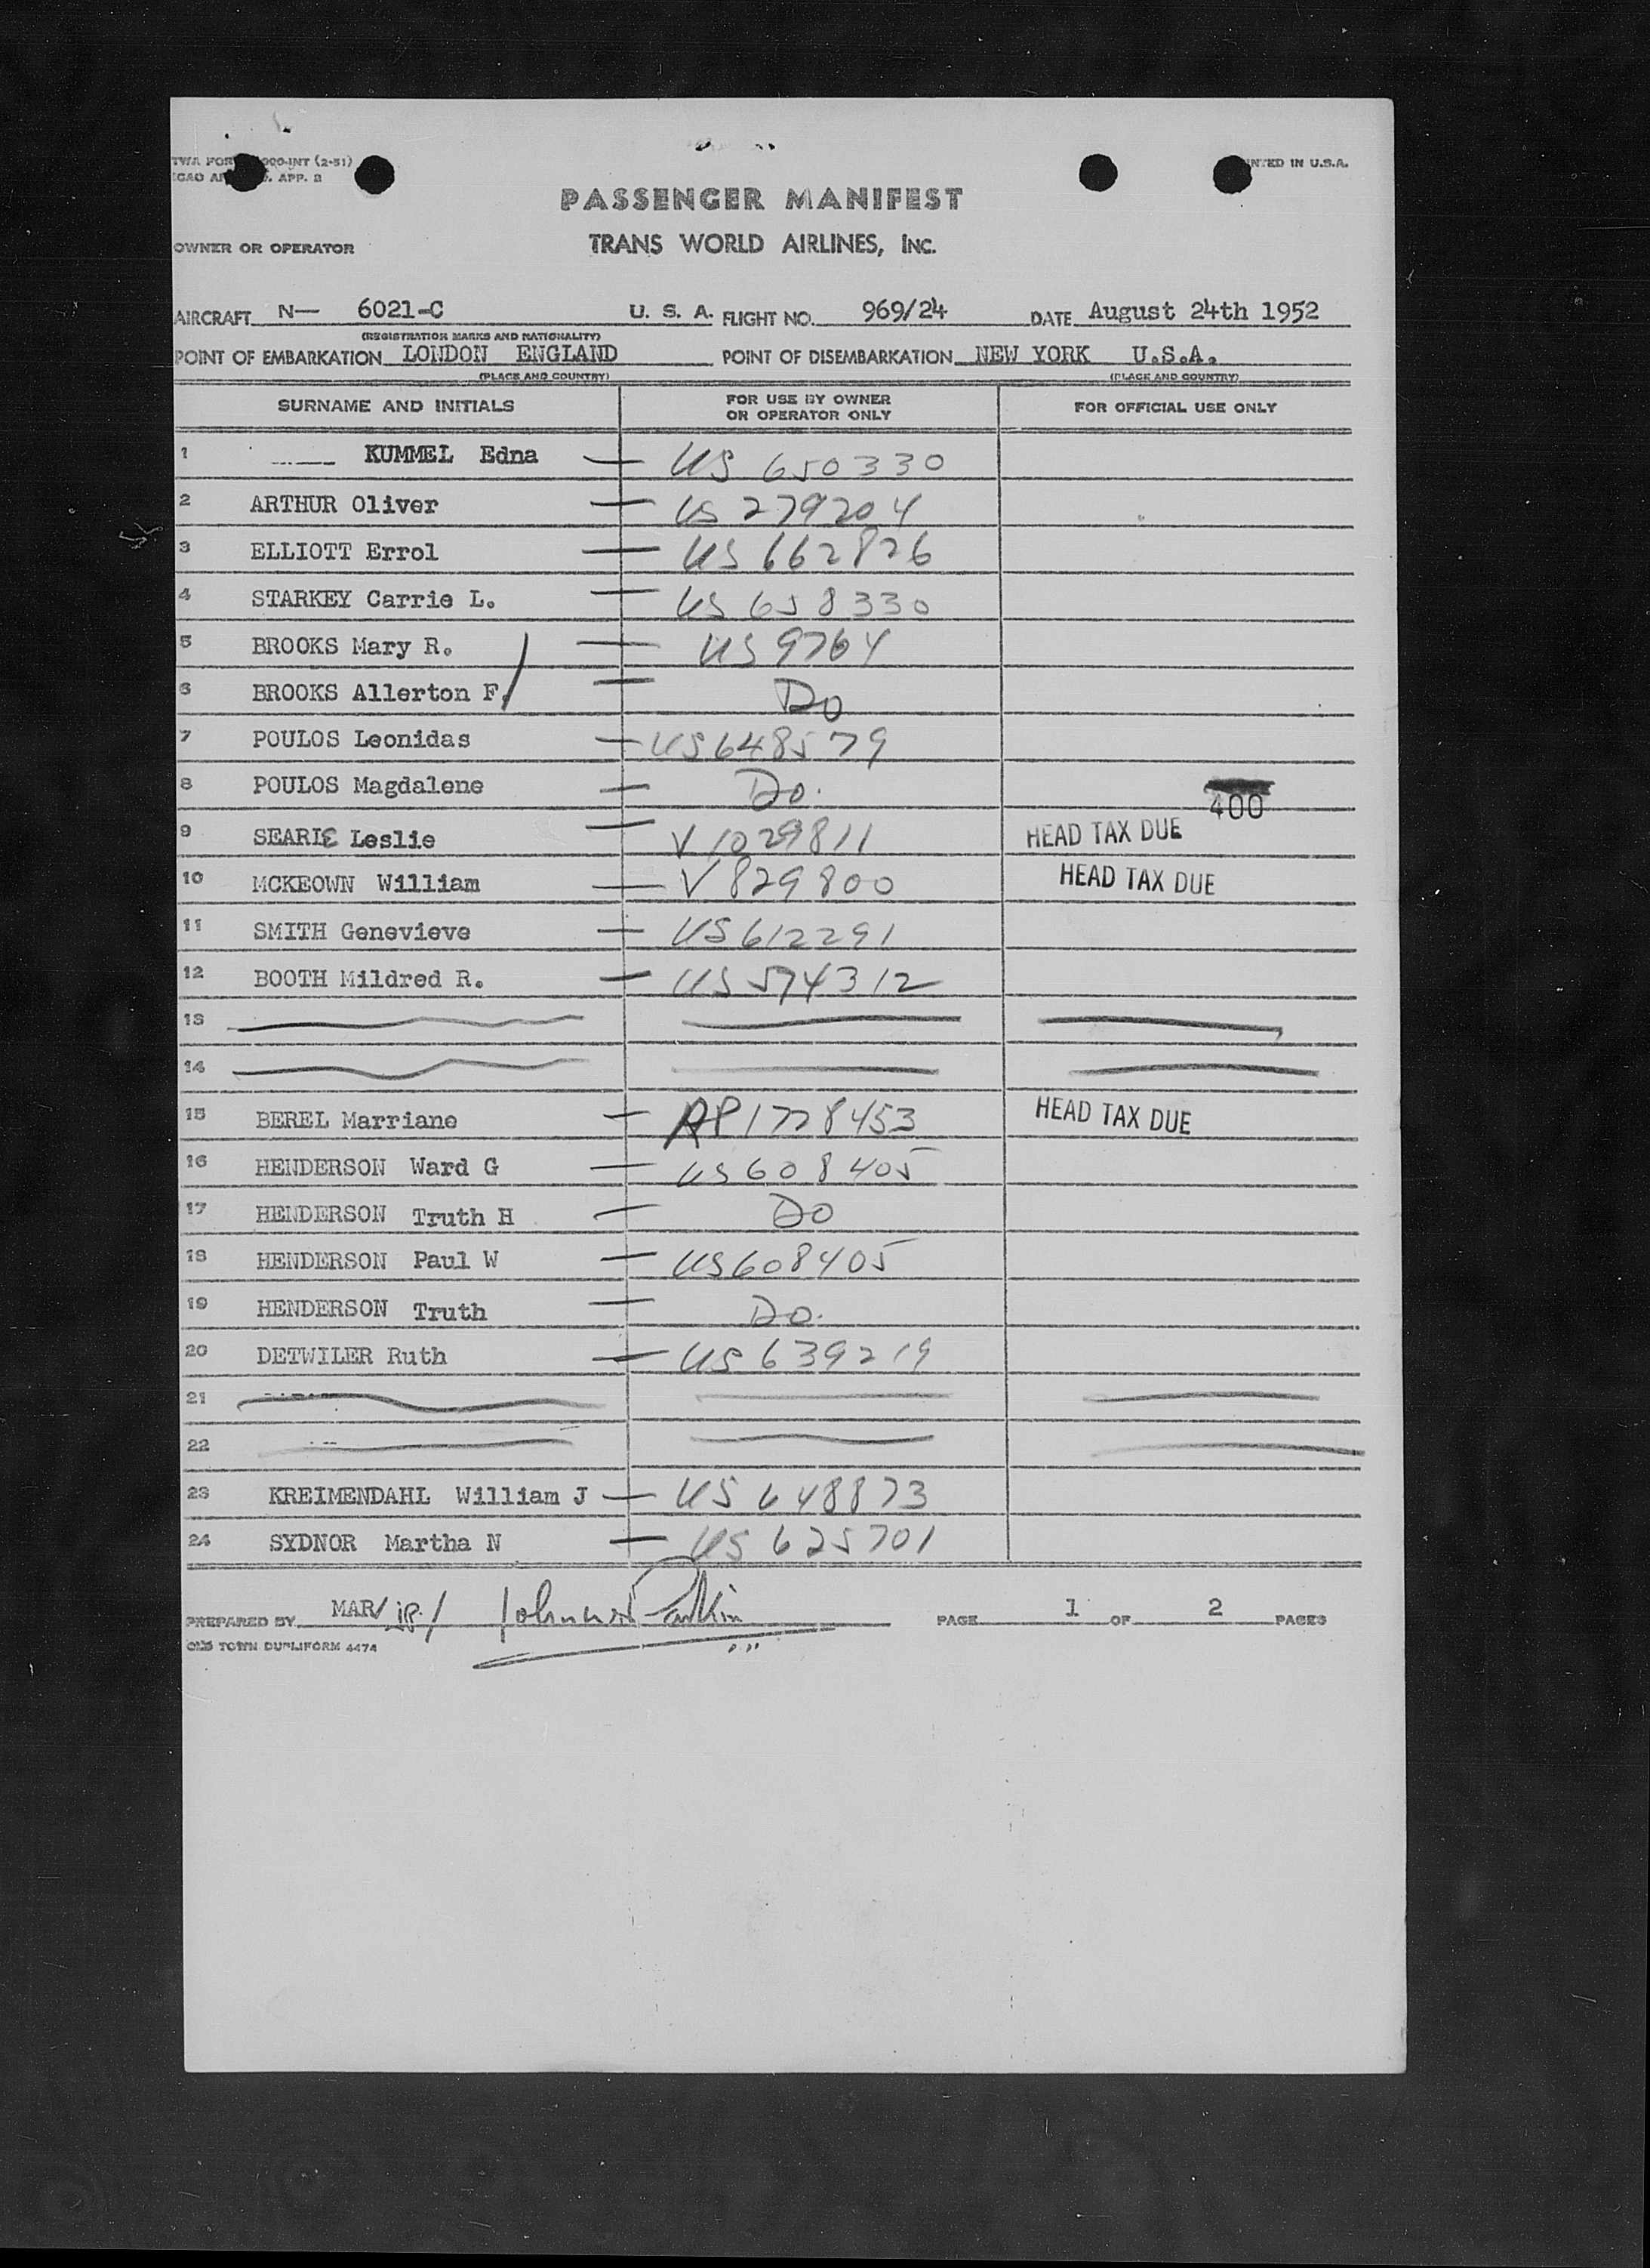 TWA FOR 000-INT (2-51)
ICAO APP. 2
PRINTED IN U.S.A.
PASSENGER MANIFEST
OWNER OR OPERATOR TRANS WORLD AIRLINES, INC.
AIRCRAFT N— 6021-C U. S. A. FLIGHT NO. 969/24 DATE August 24th 1952
(REGISTRATION MARKS AND NATIONALITY)
POINT OF EMBARKATION LONDON ENGLAND POINT OF DISEMBARKATION NEW YORK U.S.A.
(PLACE AND COUNTRY) (PLACE AND COUNTRY)
SURNAME AND INITIALS FOR USE BY OWNER OR OPERATOR ONLY FOR OFFICIAL USE ONLY
1 KUMMEL Edna — US 650330
2 ARTHUR Oliver — US 279204
3 ELLIOTT Errol — US 662826
4 STARKEY Carrie L. — US 658330
5 BROOKS Mary R. — US 9764
6 BROOKS Allerton F. — Do
7 POULOS Leonidas — US 648579
8 POULOS Magdalene — Do. 400
9 SEARLE Leslie — V 1029811 HEAD TAX DUE
10 MCKEOWN William — V 829800 HEAD TAX DUE
11 SMITH Genevieve — US 612291
12 BOOTH Mildred R. — US 574312
13
14
15 BEREL Marriane — AP1728453 HEAD TAX DUE
16 HENDERSON Ward G — US 608405
17 HENDERSON Truth H — Do
18 HENDERSON Paul W — US 608405
19 HENDERSON Truth — Do.
20 DETWILER Ruth — US 639219
21
22
23 KREIMENDAHL William J — US 648873
24 SYDNOR Martha N — US 625701
PREPARED BY MAR/ PAGE 1 OF 2 PAGES
OLD TOWN DUPLIFORM 4474